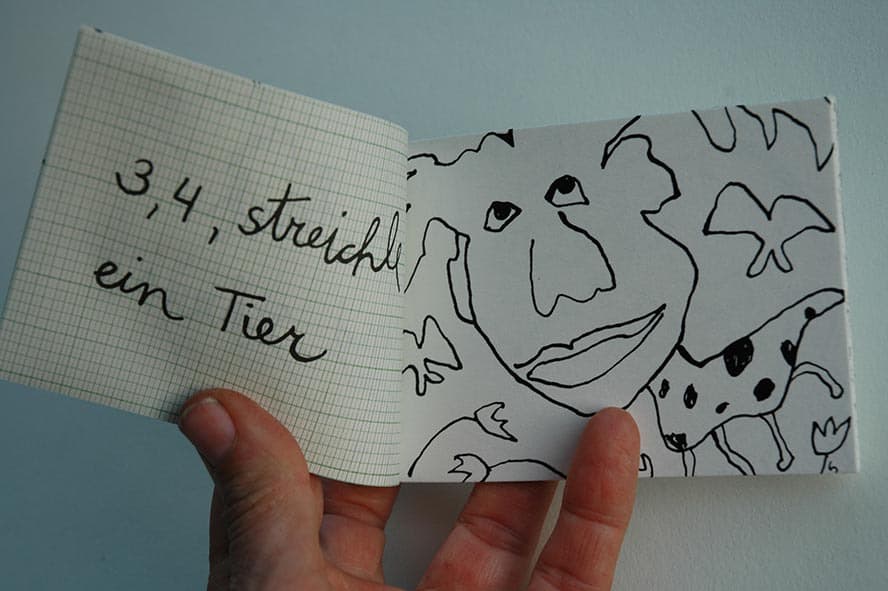 3, 4, streichle
ein Tier